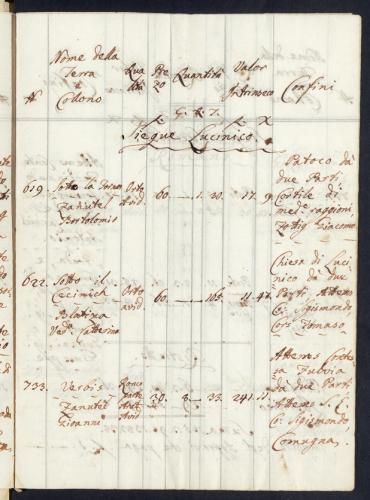 N.
Nome della
Terra
e
Colono
Qua
lità
Pre
zo
Quantità
Valor
Intrinseco
Confini
C. & T.
Siegue Lucinico.
619.
Sotto la
Zanutel
Bortolomio
Orto
Avid.
60
1.
30.
17.
9.
Patoco da
due Parti
Cortile di
med. raggioni,
Giacomo
622.
Sotto il
Cecinich
Platina
Ved. Catterina
Orto
avid.
60
165.
11.
47.
Chiesa di Luci
nico da due
Parti Attems
Co. Sigismondo,
Tomaso.
733.
Zanutel
Gioanni
Ronco
parte
Arat.
Avid.
30.
8.
33.
241.
Attems Contes
sa Fulvia
da due Parti
Attems S. C.
Co. Sigismondo
Comugna.